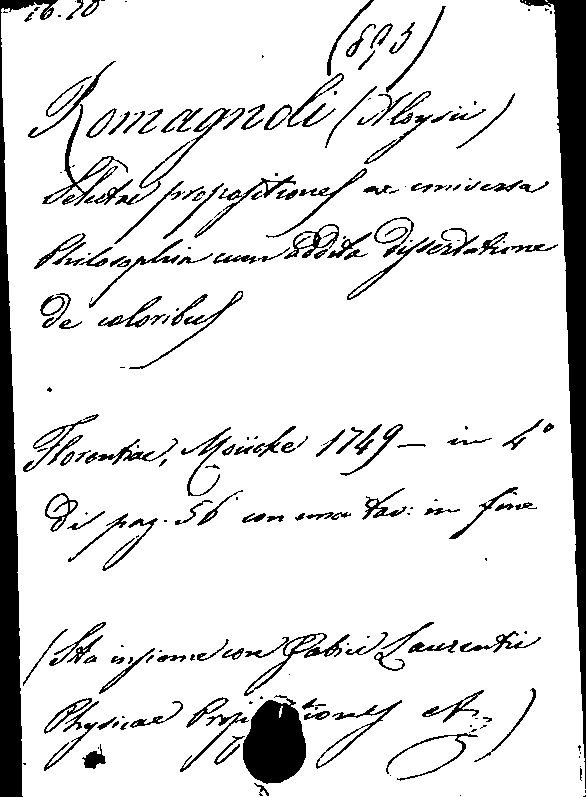 16.20
(893)
Romagnoli (Aloysii)
Selectae propositiones ex universa
Philosophia cum addita dissertatione
de coloribus
Florentiae, Moücke 1749 — in 4°
di pag. 56 con una tav: in fine
(Sta insieme con Gabrii Laurentii
Physicae Propositiones etc)